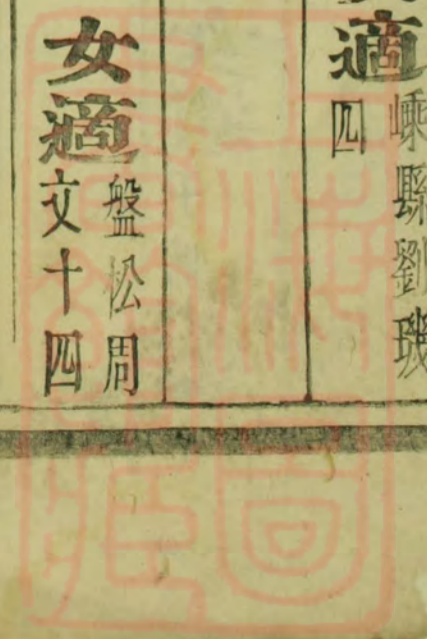 女適
嵊縣劉璣
四
女適
盤松周
文十四